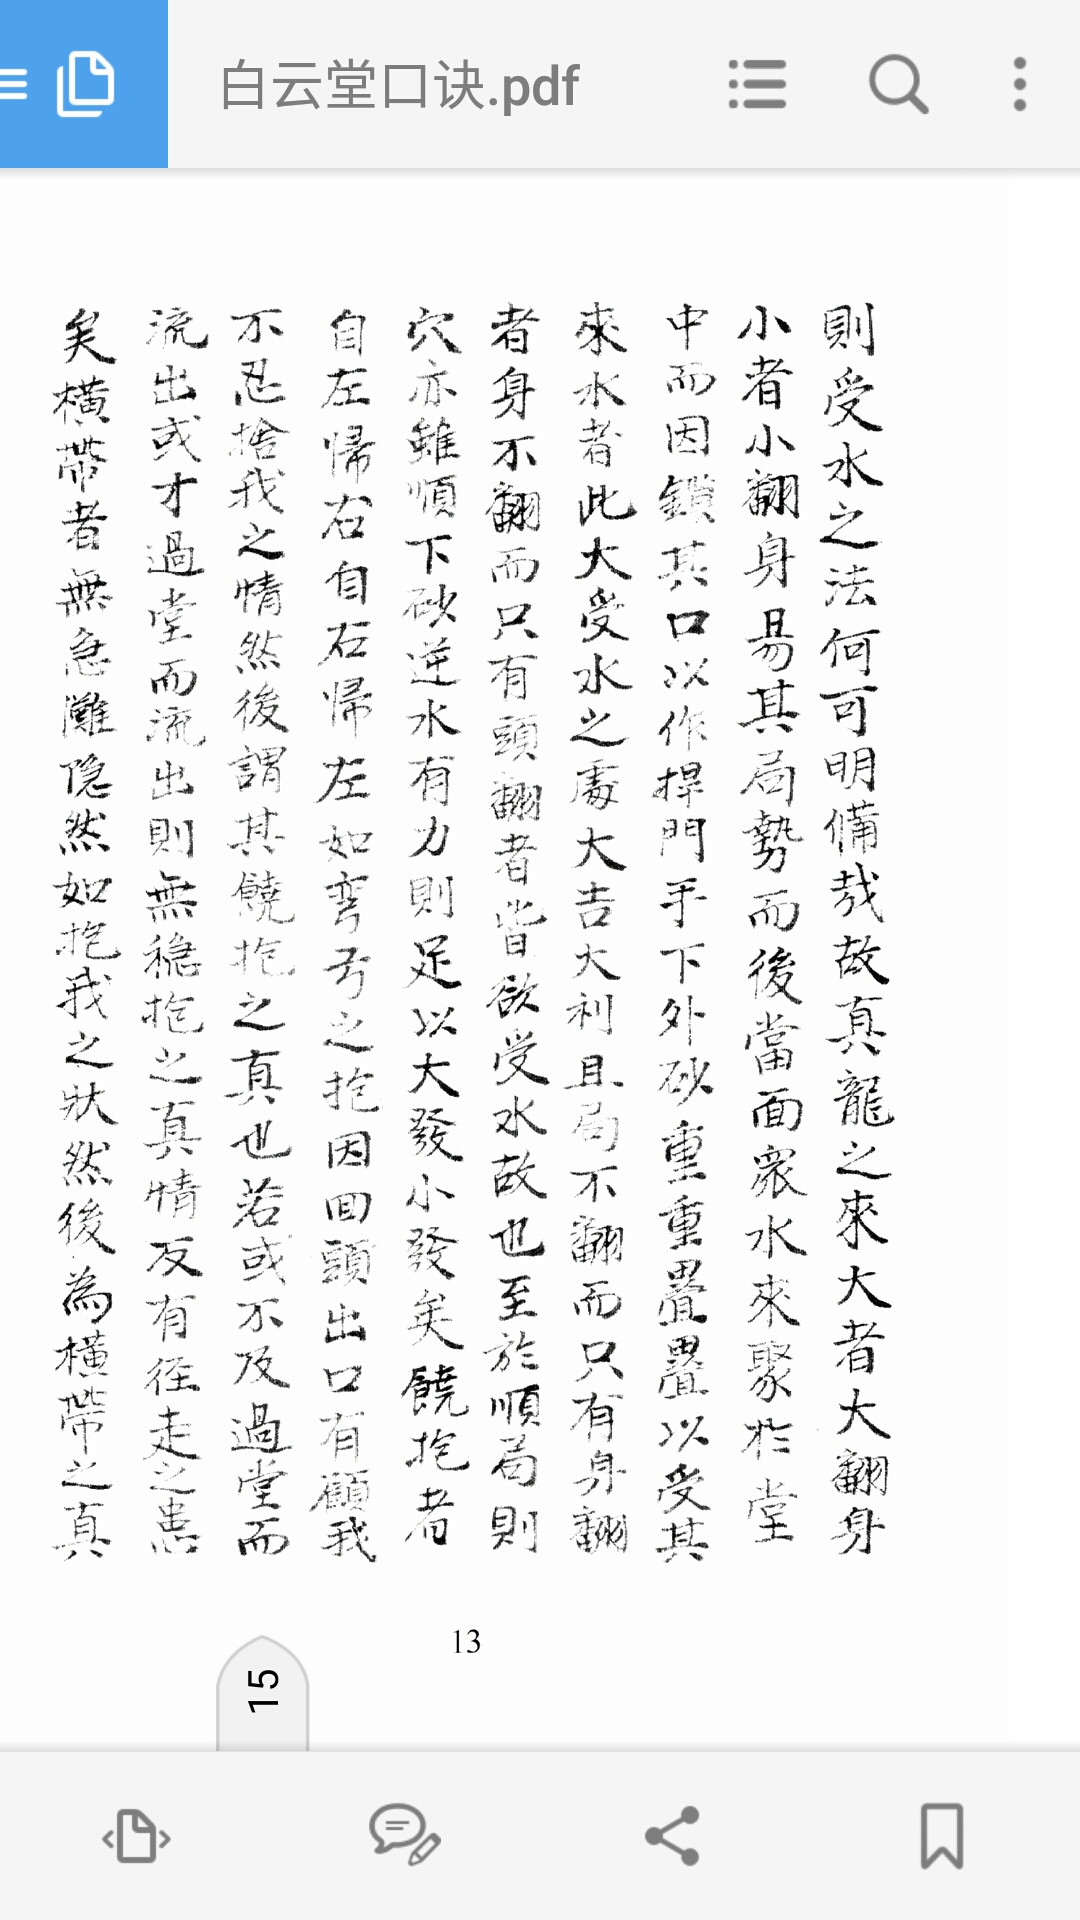 白云堂口诀.pdf
則受水之法何可明備哉故真龍之來大者大翻身
小者小翻身易其局勢而後當面衆水來聚於堂
中而因鎖其口以作捍門手下外砂重重疊疊以受其
來水者此大受水之處大吉大利且局不翻而只有身翻
者身不翻而只有頭翻者皆欲受水故也至於順局則
穴亦雖順下砂逆水有力則足以大發小發矣饒抱者
自左歸右自右歸左如弯弓之抱因回頭出口有顧我
不忍捨我之情然後謂其饒抱之真也若或不及過堂而
流出或才過堂而流出則無穩抱之真情反有徑走之患
矣橫帶者無急灘隐然如抱我之狀然後為橫帶之真
13
15